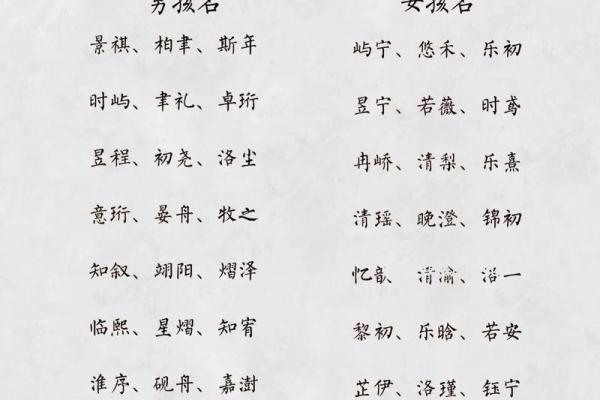 男孩名
景祺、柏聿、斯年
时屿、聿礼、卓珩
昱程、初尧、洛尘
意珩、晏舟、牧之
知叙、翊阳、熠泽
临熙、星熠、知宥
淮序、砚舟、嘉澍
女孩名
屿宁、悠禾、乐初
昱宁、若薇、时鸢
冉峤、清梨、乐熹
清瑶、晚澄、锦初
忆歆、清渝、沿一
黎初、乐晗、若安
芷伊、洛瑾、钰宁